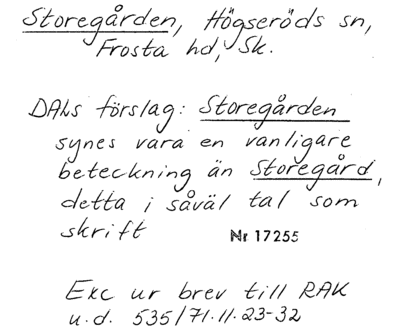 Storegården, Högseröds sn,
Frosta hd, Sk.
DALs förslag: Storegården
synes vara en vanligare
beteckning än Storegård,
detta i såväl tal som
skrift
Nr 17255
Exc ur brev till RAK
u.d. 535/71.11.23-32